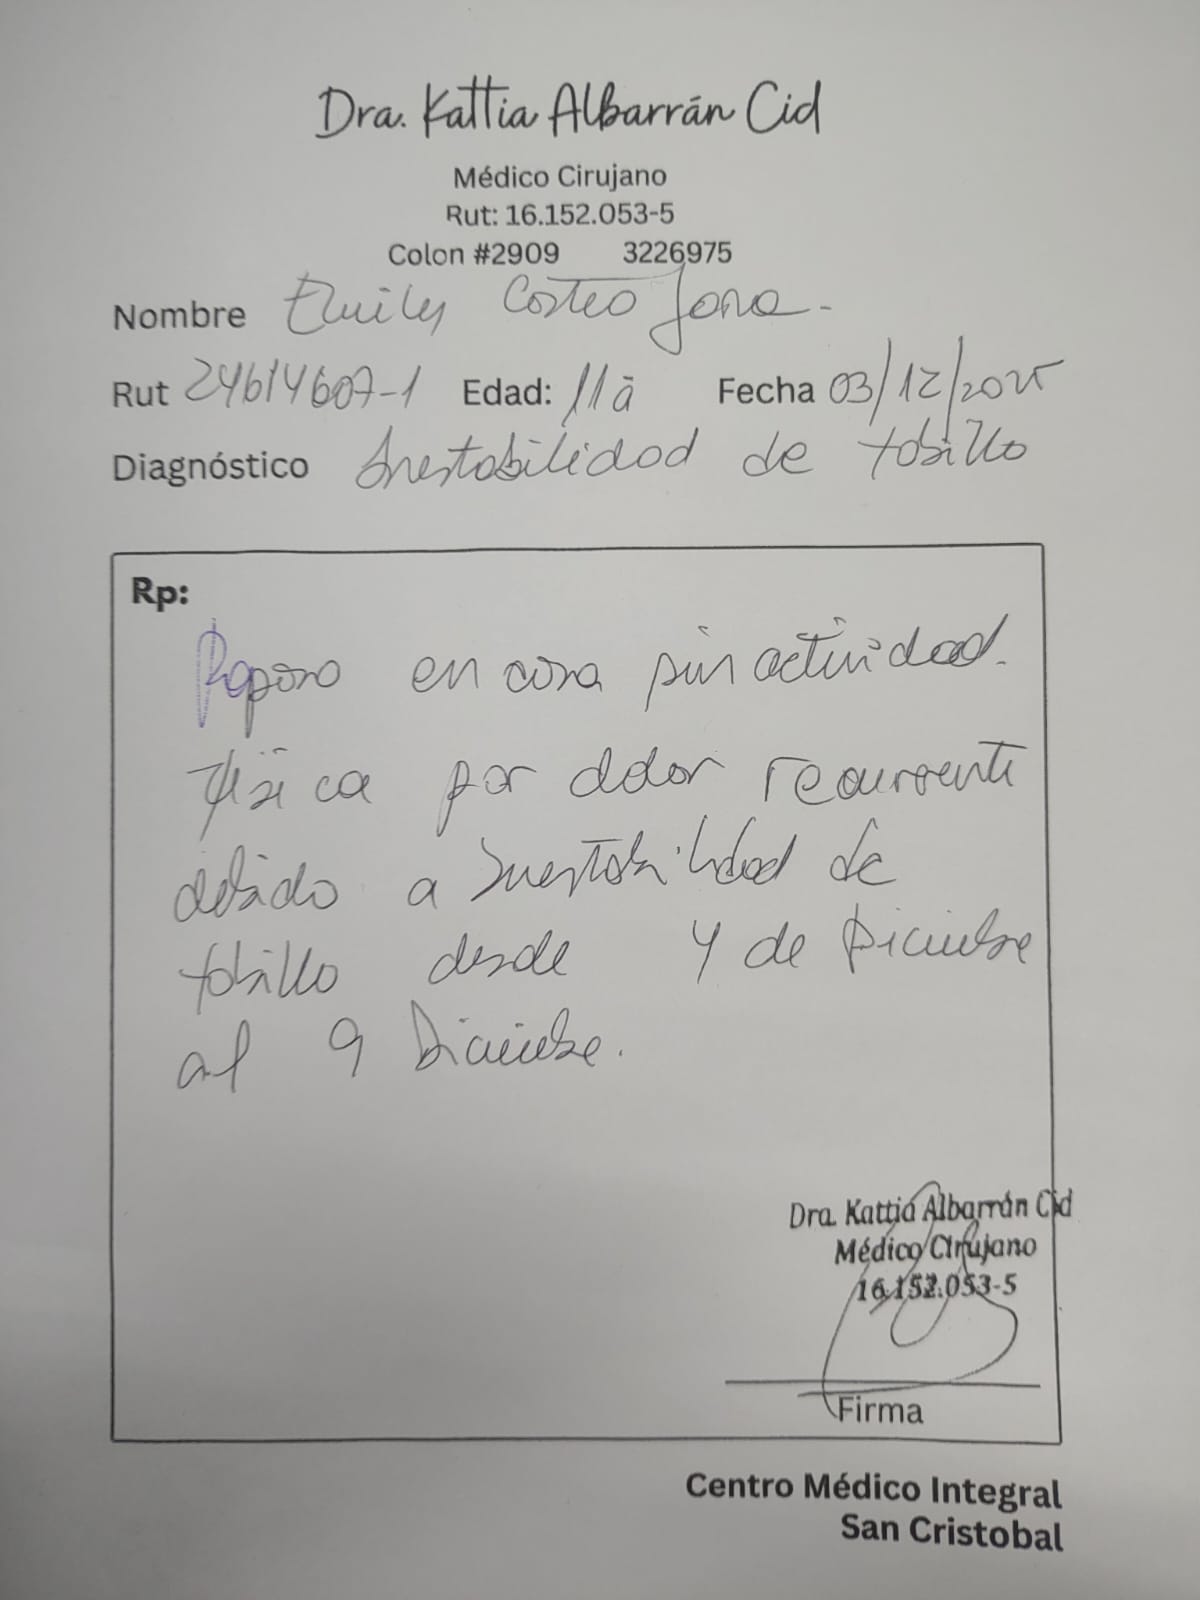 Dra. Kattia Albarrán Cid
Médico Cirujano
Rut: 16.152.053-5
Colon #2909 3226975
Nombre Emily Jara.-
Rut 24614607-1 Edad: 11 a Fecha 03/12/2025
Diagnóstico Inestabilidad de tobillo
Rp:
Reposo en casa sin actividad.
física por dolor recurrente
debido a Inestabilidad de
tobillo desde 4 de Diciembre
al 9 Diciembre.
Dra. Kattia Albarrán Cid
Médico Cirujano
16.152.053-5
Firma
Centro Médico Integral
San Cristobal